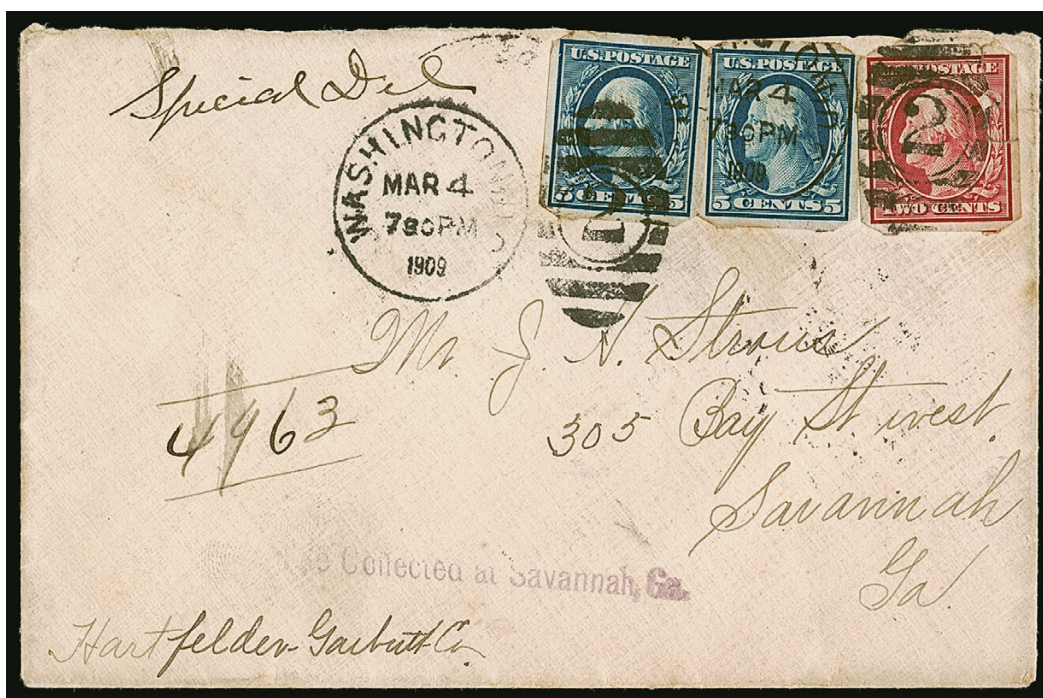 Special Del
WASHINGTON, D.C.
MAR 4
7 30 PM
1909
U.S. POSTAGE
5 CENTS 5
2
U.S. POSTAGE
5 CENTS 5
MAR 4
7 30 PM
1909
POSTAGE
TWO CENTS
2
Mr J. A. Strous
305 Bay St west.
Savannah
Ga.
4963
Collected at Savannah, Ga.
Hartfelder-Garbutt Co